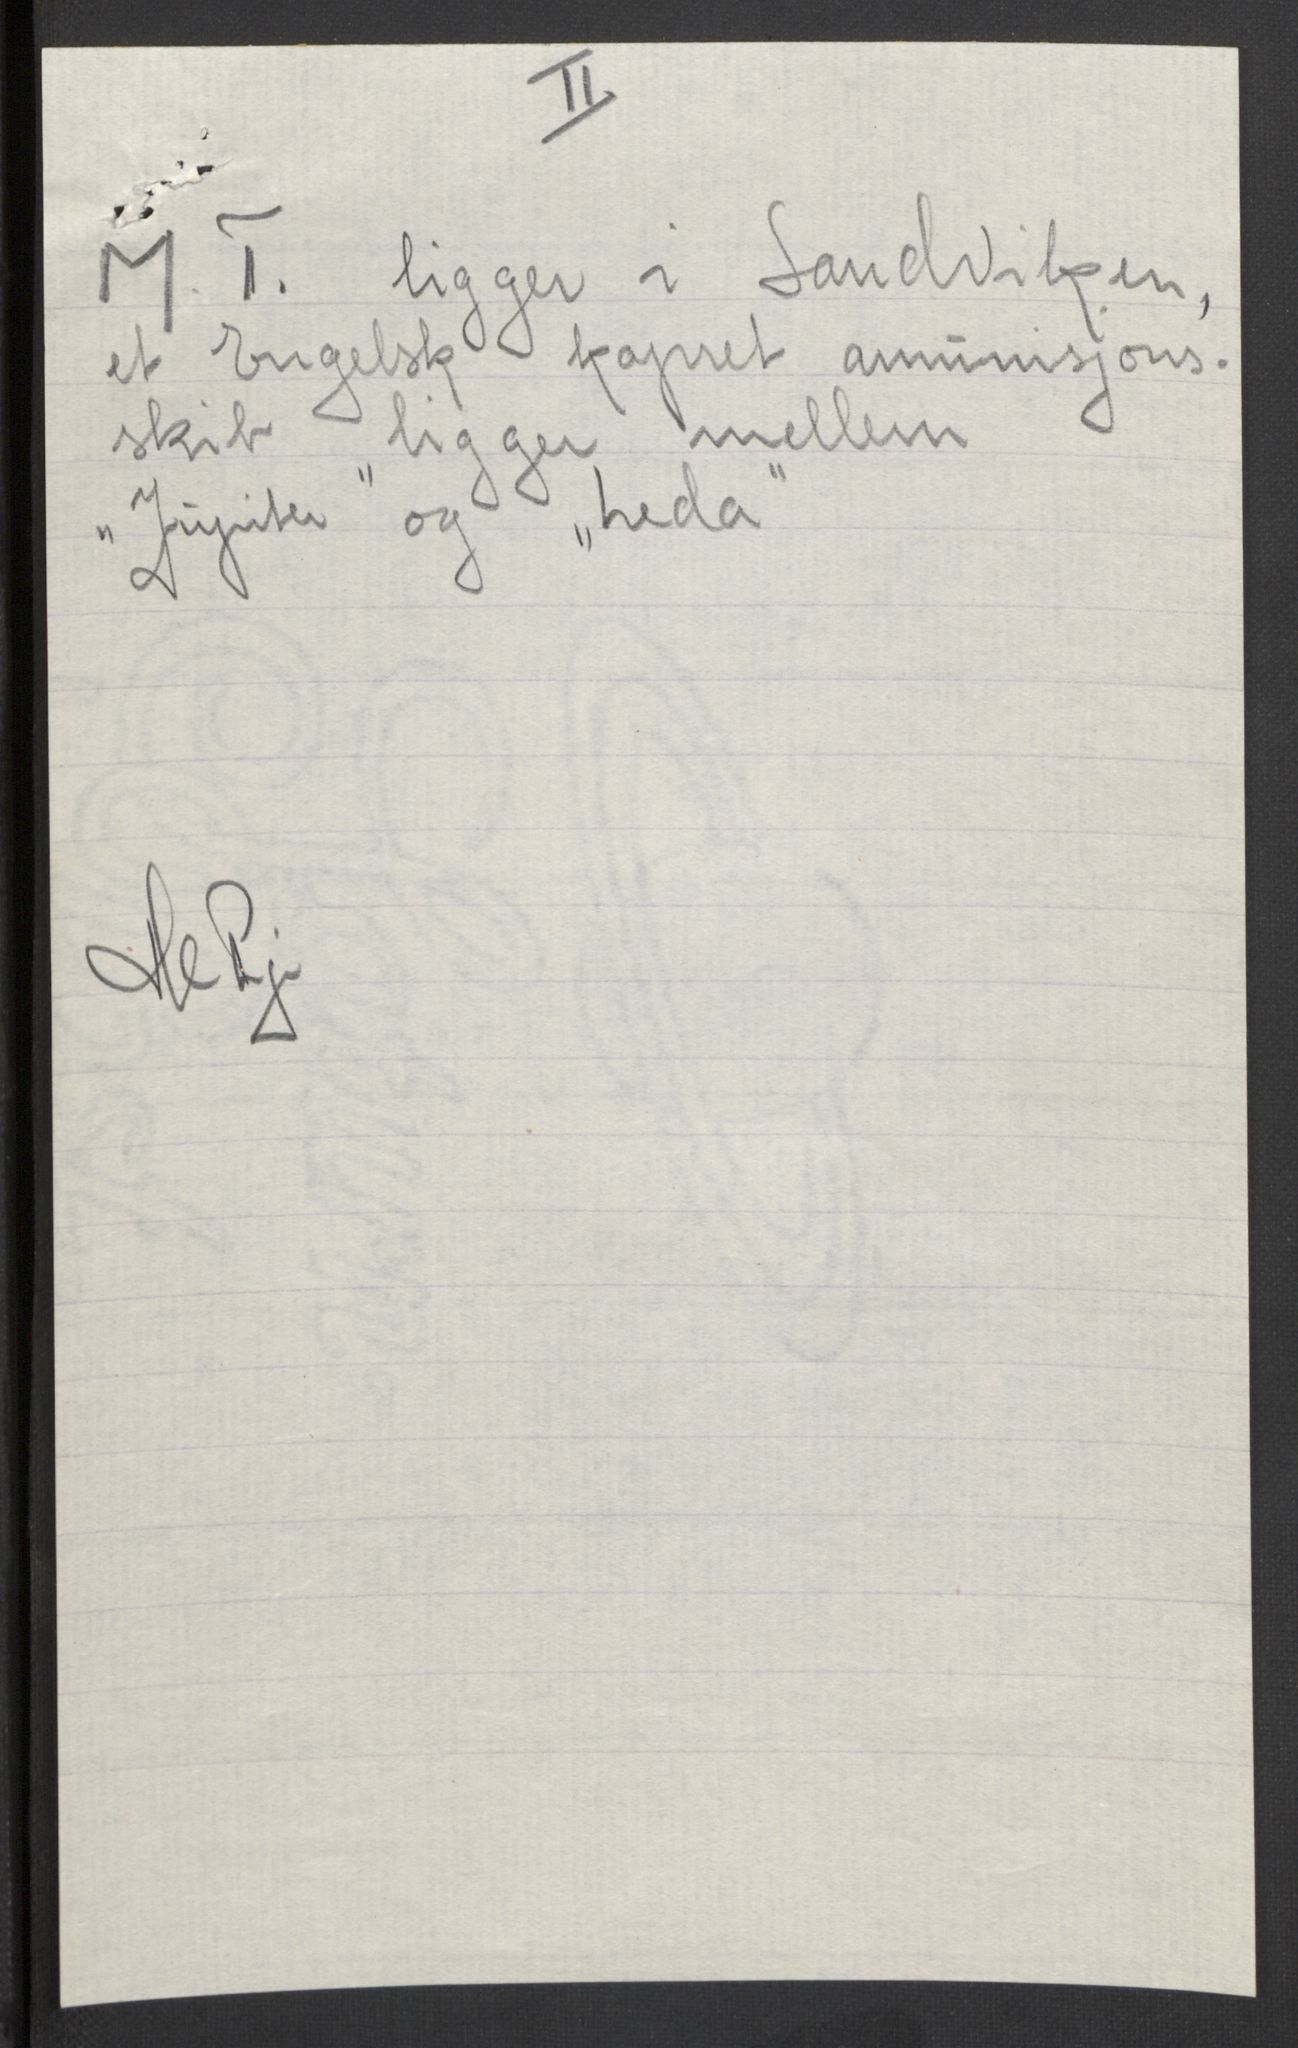 II
M. T. ligger i Sandviken,
et Engelsk kapret ammunisjons-
skib ligger mellem
„Jupiter" og „Leda"